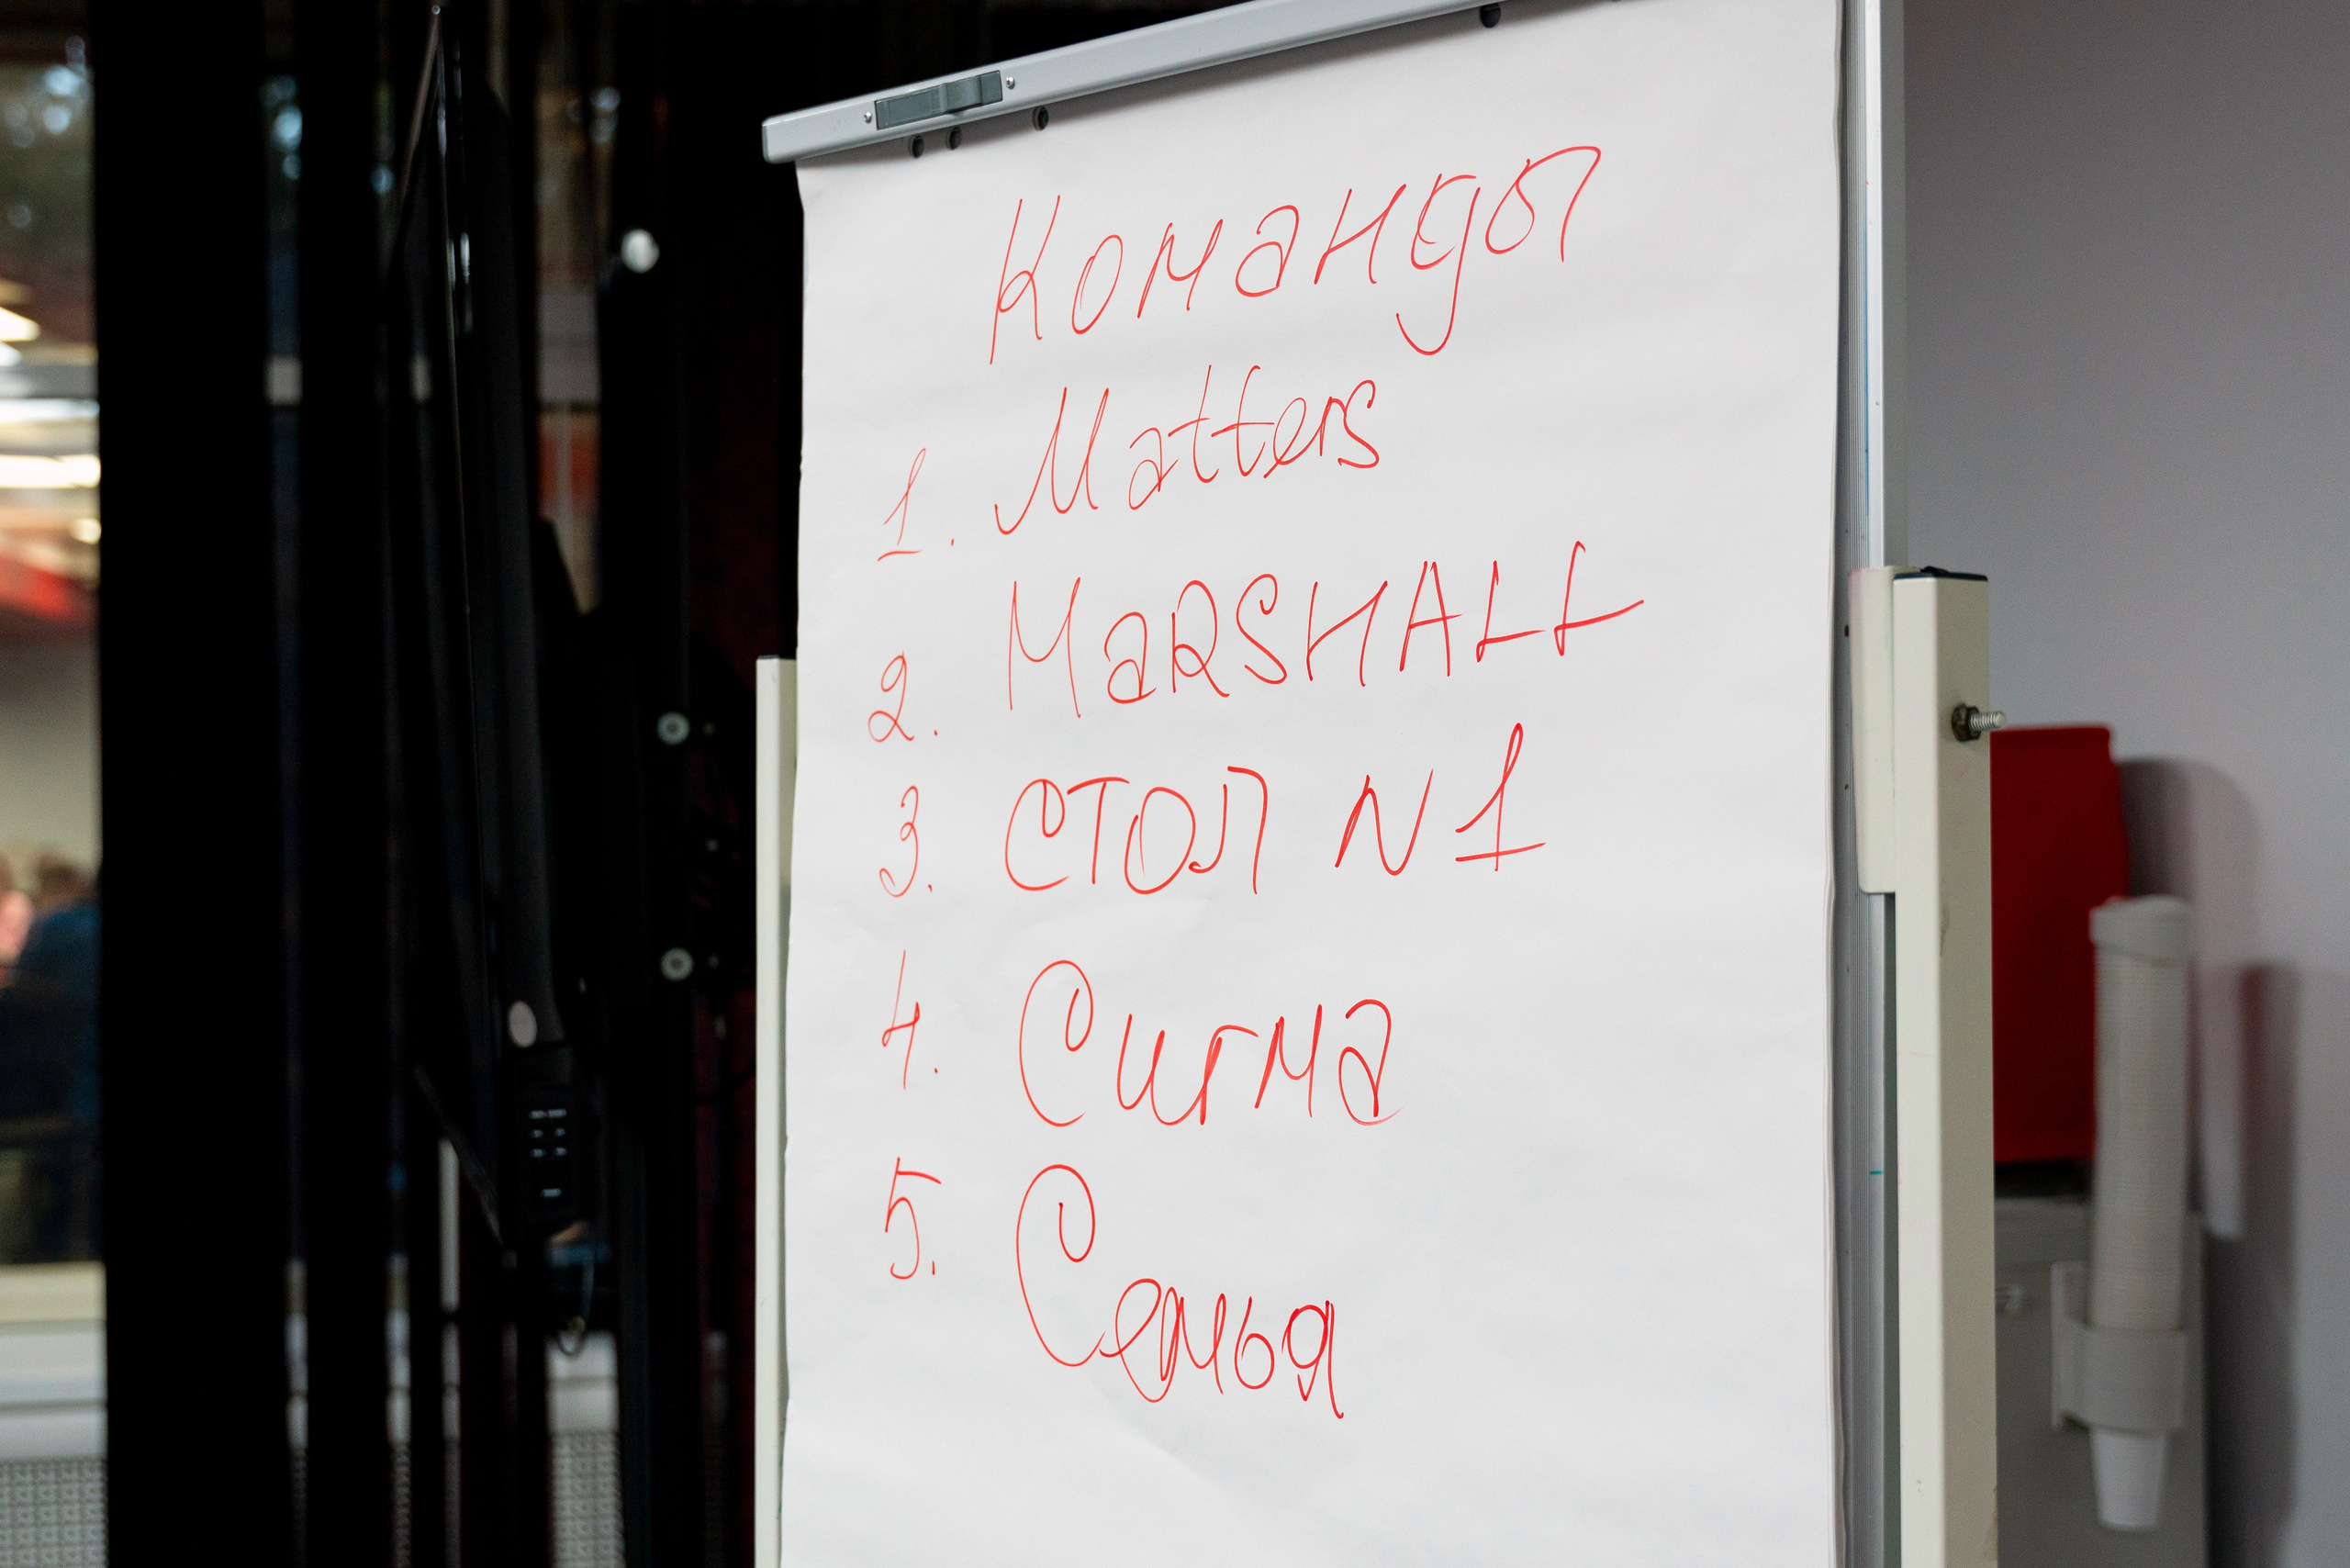 Команды
1. Matters
2. MaRSHALL
3. СТОЛ N1
4. Сигма
5. Семья